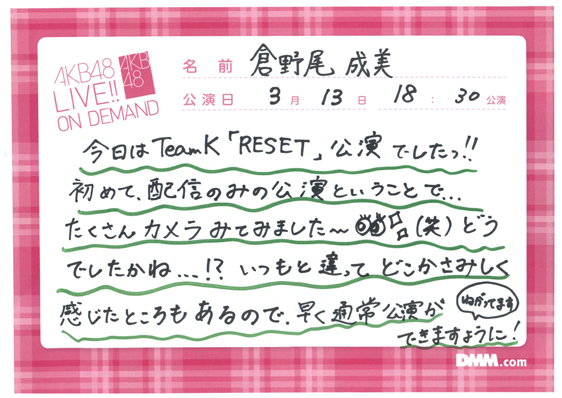 AKB48
LIVE!!
ON DEMAND
AKB
48
名前 倉野尾 成美
公演日 3月 13日 18:30公演
今日は TeamK「RESET」公演 でしたっ!!
初めて、配信のみの公演ということで...
たくさん カメラ みてみました〜 (笑) どう
でしたかね...!? いつもと違って どこかさみしく
感じたところも あるので、早く通常公演が
できますように!
ねがってます
DMM.com